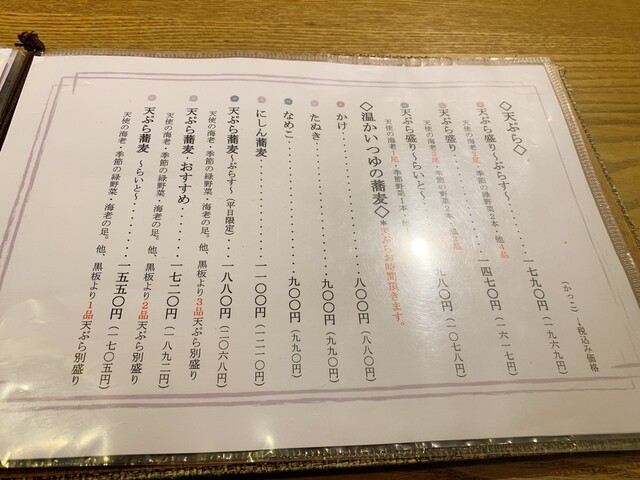 (かっこ)→税込み価格
◇天ぷら◇
天ぷら盛り〜ぷらす〜・・・・・・一七九〇円(一九六九円)
天使の海老2尾・季節の緑野菜2本・他4品
天ぷら盛り・・・・・・一四七〇円(一六一七円)
天使の海老
天ぷら盛り〜らいと〜・・・・・・九八〇円(一〇七八円)
天使の海老1尾・季節野菜1本・
◇温かいつゆの蕎麦◇*天ぷらお時間頂きます。
かけ・・・・・・八〇〇円(八八〇円)
たぬき・・・・・・九〇〇円(九九〇円)
なめこ・・・・・・九〇〇円(九九〇円)
にしん蕎麦・・・・・・一一〇〇円(一二一〇円)
天ぷら蕎麦〜ぷらす〜(平日限定)・・一八八〇円(二〇六八円)
天使の海老・季節の緑野菜・海老の足。他、黒板より3品天ぷら別盛り
天ぷら蕎麦・おすすめ・・・・・・一七二〇円(一八九二円)
天使の海老・季節の緑野菜・海老の足。他、黒板より2品天ぷら別盛り
天ぷら蕎麦 〜らいと〜・・・・・・一五五〇円(一七〇五円)
天使の海老・季節の緑野菜・海老の足。他、黒板より1品天ぷら別盛り